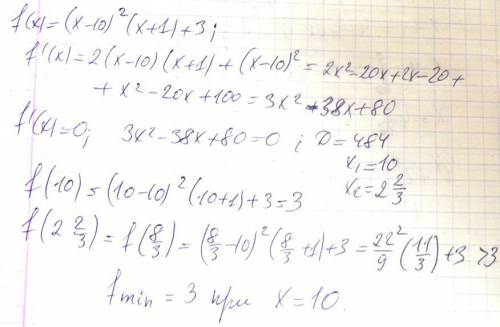 f(x)=(x-10)²(x+1)+3;
f'(x)=2(x-10)(x+1)+(x-10)²=2x²-20x+2x-20+
+x²-20x+100=3x²-38x+80
f'(x)=0; 3x²-38x+80=0; D=484
x₁=10
x₂=2 2/3
f(10)=(10-10)²(10+1)+3=3
f(2 2/3)=f(8/3)=(8/3-10)²(8/3+1)+3=22²/9(11/3)+3>3
fmin=3 при x=10.